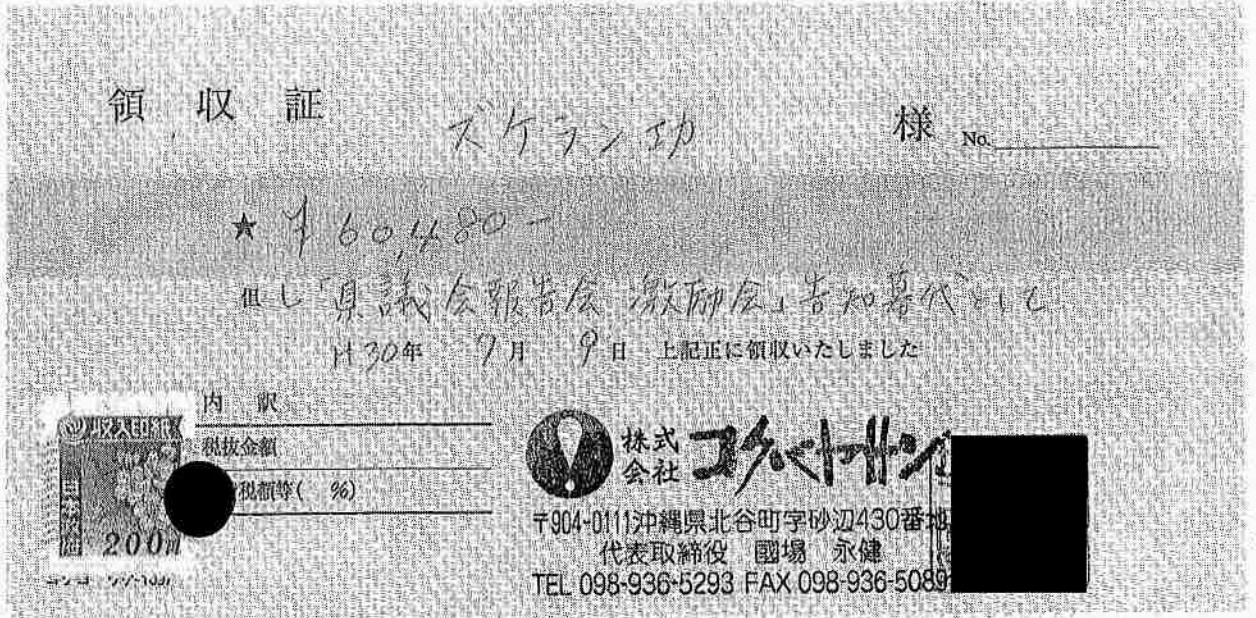 領収証 ズケラン功 様 No.
★ ¥60,480-
但し「県議会報告会 激励会」告知幕代として
H30年 7月 9日 上記正に領収いたしました
内訳
税抜金額
税額等( %)
収入印紙
200
株式会社 コクバ
〒904-0111沖縄県北谷町字砂辺430番地
代表取締役 國場 永健
TEL 098-936-5293 FAX 098-936-5089